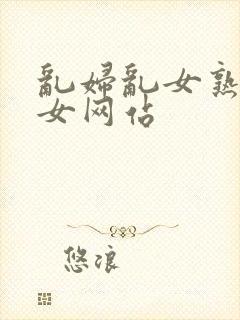 亂婦亂女熟
女网佔
悠浪